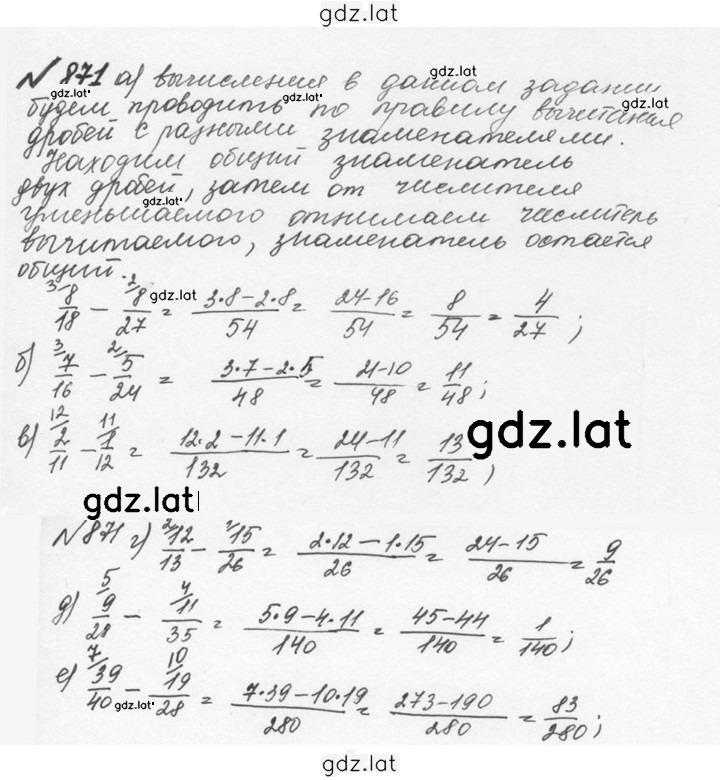 gdz.lat
№871 а) вычисления в данном задании
gdz.lat
будем проводить по правилу вычитания
gdz.lat gdz.lat
дробей с разными знаменателями.
Находим общий знаменатель
двух дробей, затем от числителя
gdz.lat
уменьшаемого отнимаем числитель
вычитаемого, знаменатель остаётся
общий.
3/8/18 - 2/8/27 = (3·8-2·8)/54 = (24-16)/54 = 8/54 = 4/27;
gdz.lat
б) 3/7/16 - 2/5/24 = (3·7-2·5)/48 = (21-10)/48 = 11/48;
в) 12/2/11 - 11/1/12 = (12·2-11·1)/132 = (24-11)/132 = 13/132;
gdz.lat
gdz.lat
№871 г) 2/12/13 - 1/15/26 = (2·12-1·15)/26 = (24-15)/26 = 9/26
gdz.lat
д) 5/9/28 - 4/11/35 = (5·9-4·11)/140 = (45-44)/140 = 1/140;
gdz.lat
е) 7/39/40 - 10/19/28 = (7·39-10·19)/280 = (273-190)/280 = 83/280;
gdz.lat
gdz.lat